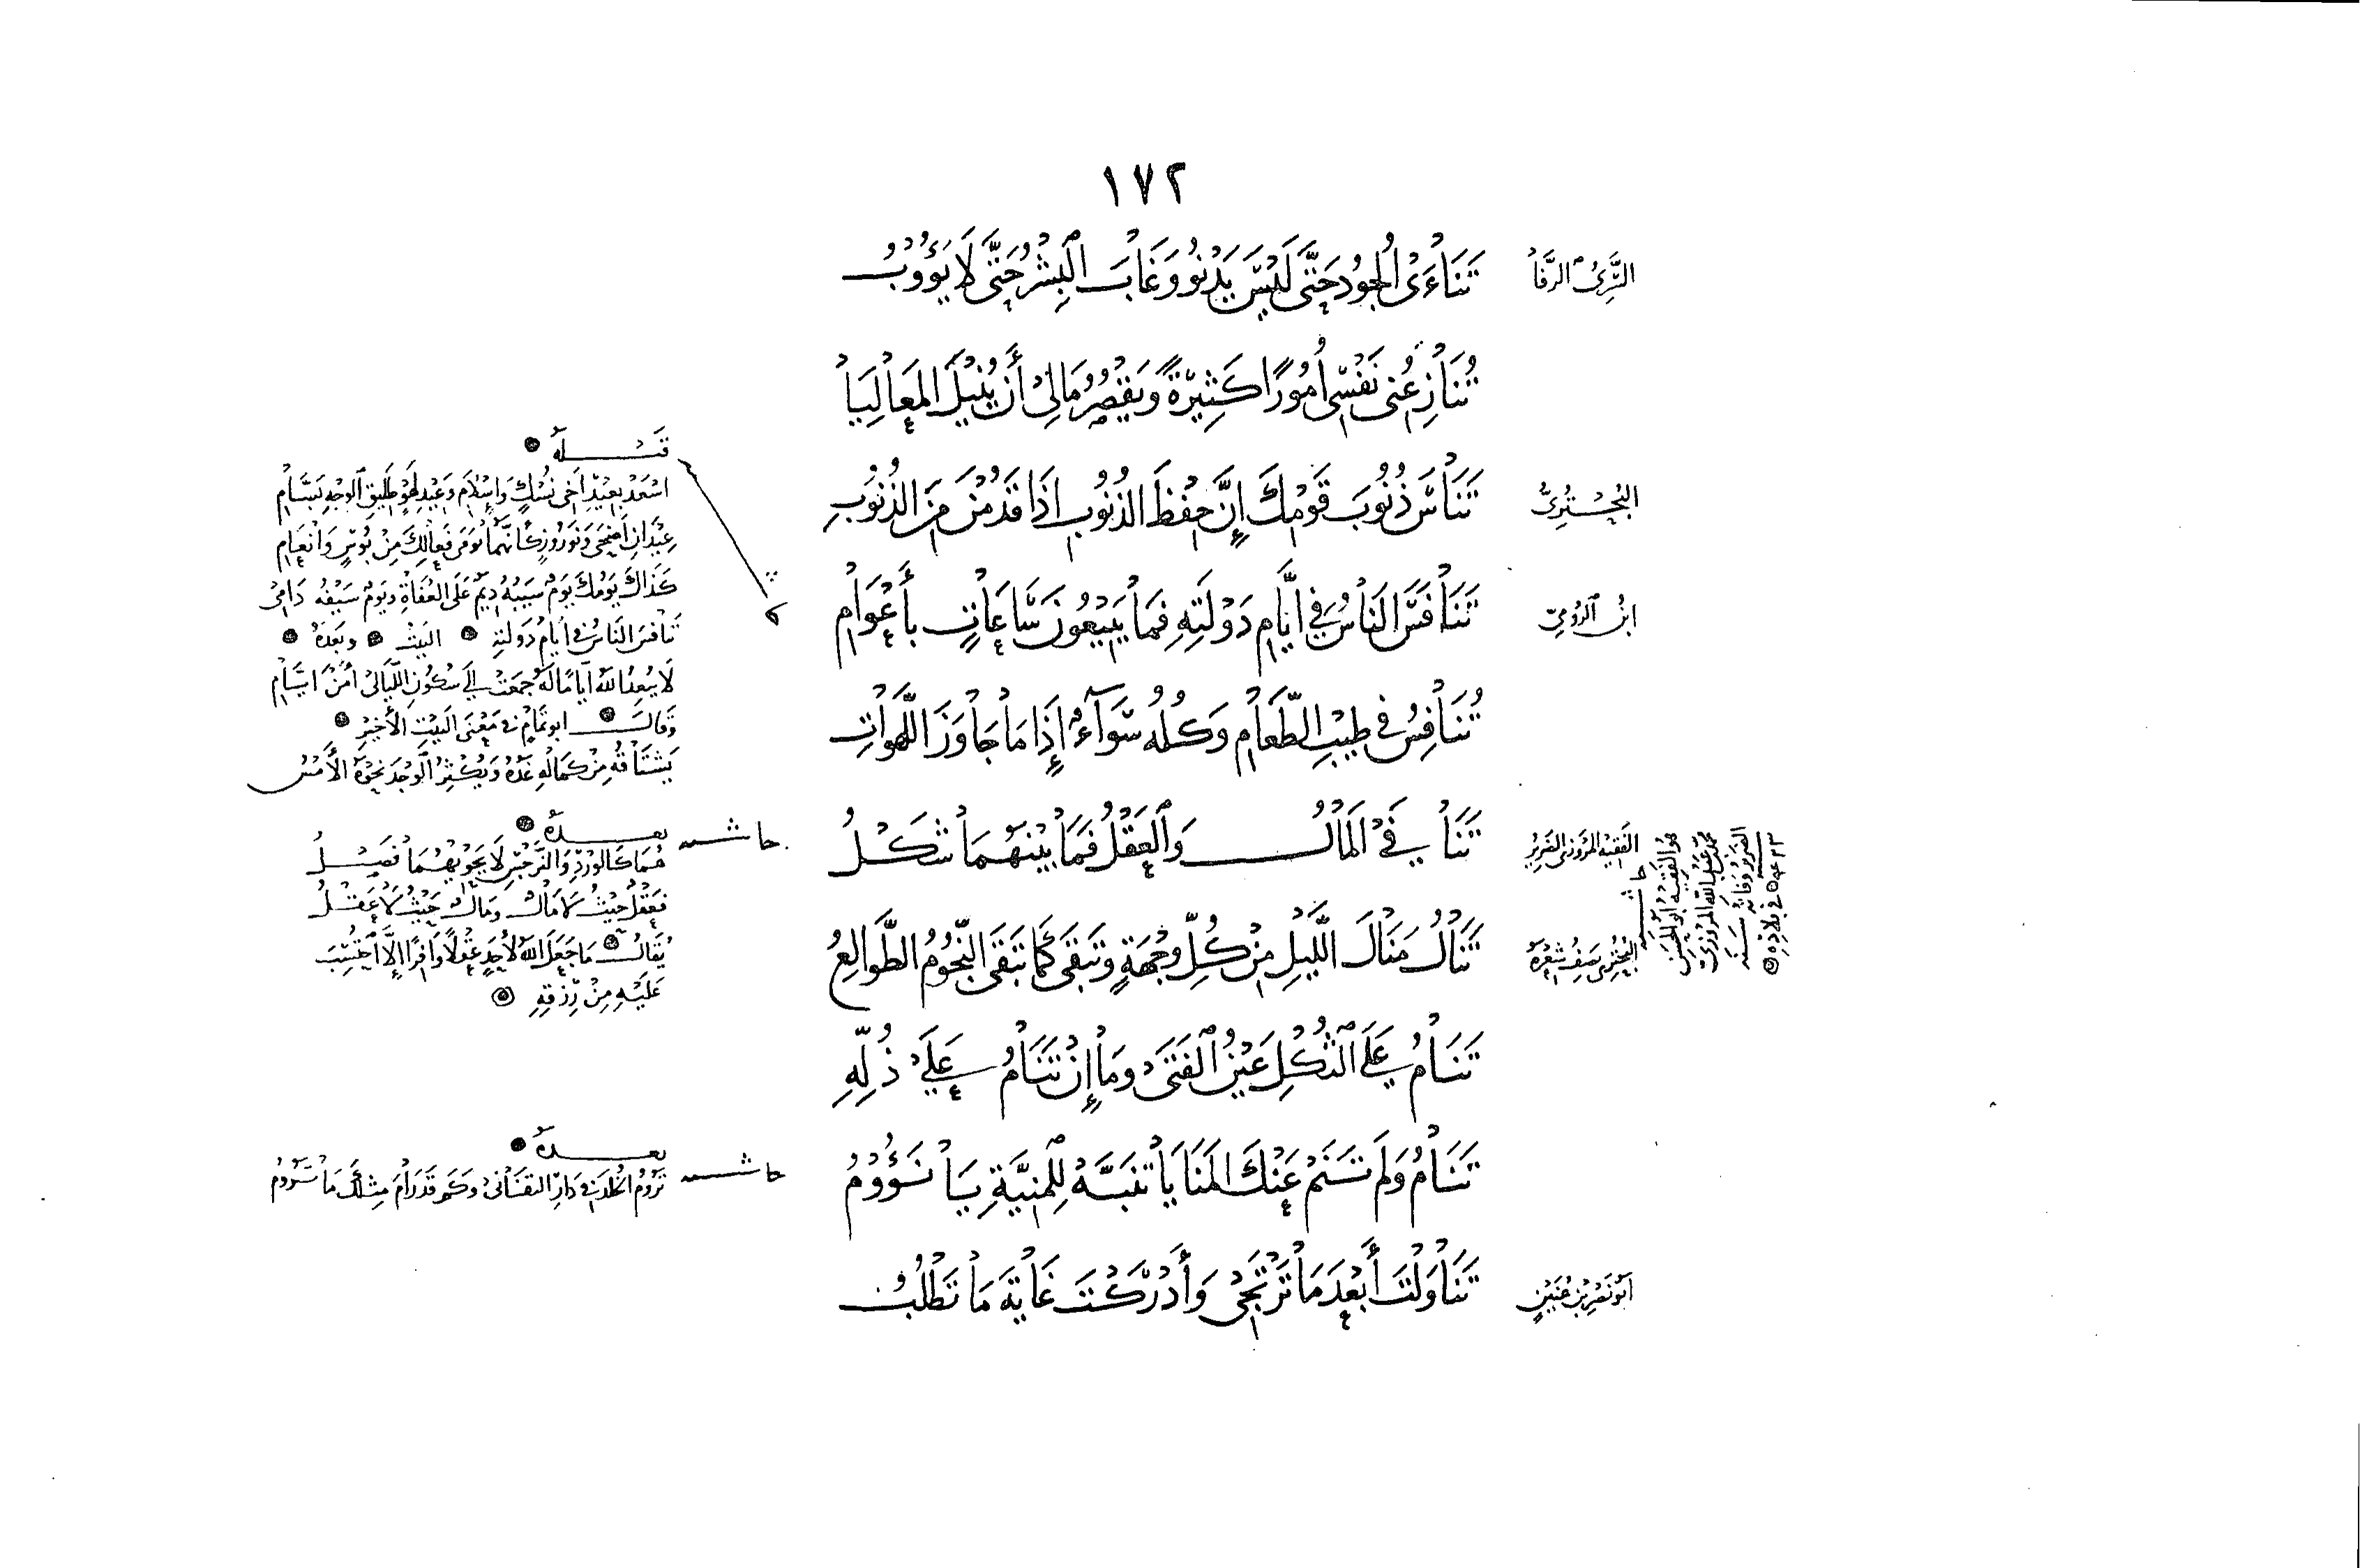 ١٧٢
السَّرِىُّ الرَّفَّا
تَنَاءَى الجُودُ حَتَّى لَيْسَ يَدْنُو وَغَابَ الْبِشْرُ حَتَّى لَا يَؤُوبُ
تُنَازِعُنِي نَفْسِي أُمُورًا كَثِيرَةً وَيَقْصِرُ مَالِي أَنْ يُنِيلَ المَعَالِيَا
البُحْتُرِيُّ
تَنَاسَ ذُنُوبَ قَوْمِكَ إِنَّ حِفْظَ الذُّنُوبِ إِذَا قَدُمْنَ مِنَ الذُّنُوبِ
ابْنُ الرُّومِيِّ
تَنَافَسَ النَّاسُ فِي أَيَّامِ دَوْلَتِهِ فَمَا يَبِيعُونَ سَاعَاتٍ بِأَعْوَامِ
تُنَافِسُ فِي طِيبِ الطَّعَامِ وَكُلُّهُ سَوَآءٌ إِذَا مَا جَاوَزَ اللَّهَوَاتِ
الفَقِيهُ المَرْوَزِيُّ الضَّرِيرُ
تَنَافَى الْمَالُ وَالْعَقْلُ فَمَا بَيْنَهُمَا شَكْلُ
البُحْتُرِيُّ يَصِفُ شِعْرَهُ
تَنَالُ مَنَالَ اللَّيْلِ مِنْ كُلِّ وِجْهَةٍ وَتَبْقَى كَمَا تَبْقَى النُّجُومُ الطَّوَالِعُ
تَنَامُ عَلَى الثُّكْلِ عَيْنُ الْفَتَى وَمَا إِنْ تَنَامُ عَلَى ذُلِّهِ
تَنَامُ وَلَمْ تَنَمْ عَنْكَ الْمَنَايَا تَنَبَّهْ لِلْمَنِيَّةِ يَا نَؤُومُ
أَبُو نَصْرِ بْنُ
تَنَاوَلْتَ أَبْعَدَ مَا تَرْتَجِي وَأَدْرَكْتَ غَايَةَ مَا تَطْلُبُ
حاشـ
هُوَ الْفَقِيهُ أَبُو الْحَسَنِ
مُحَمَّدُ بْنُ عَبْدِ اللهِ المَرْوَزِيُّ
الضَّرِيرُ وَفَاتُهُ سَنَةَ
في بلاده
قَبْلَهُ
اسْعَدْ بِعِيدٍ أَخِي نُسْكٍ وَإِسْلَامِ وَعِيدِ لَهْوٍ طَلِيقِ الْوَجْهِ بَسَّامِ
عِيدَانِ أَضْحَى وَنَوْرُوزٌ كَأَنَّهُمَا يَوْمَى فَعَالِكَ مِنْ بُوسٍ وَإِنْعَامِ
كَذَاكَ يَوْمُكَ يَوْمٌ سَيْبُهُ دِيَمٌ عَلَى الْعُفَاةِ وَيَوْمٌ سَيْفُهُ دَامِي
تَنَافَسَ النَّاسُ فِي أَيَّامِ دَوْلَتِهِ البَيْتُ وَبَعْدَهُ
لَا يُبْعِدُ اللهُ أَيَّامًا لَهُ جَمَعَتْ إِلَى سُكُونِ اللَّيَالِي أُنْسَ أَيَّامِ
وَقَالَ أَبُو تَمَّامٍ فِي مَعْنَى الْبَيْتِ الْأَخِيرِ
يَشْتَاقُهُ مِنْ كَمَالِهِ غَدُهُ وَيُكْثِرُ الْوَجْدَ نَحْوَهُ الْأَمْسُ
حاشـ بَعْدَهُ
هُمَا كَالْوَرْدِ وَالنَّرْجِسِ لَا يَحْوِيهِمَا فَصْلُ
فَعَقْلٌ حَيْثُ لَا مَالٌ وَمَالٌ حَيْثُ لَا عَقْلُ
يُقَالُ مَا جَعَلَ اللهُ لِأَحَدٍ عَقْلًا وَافِرًا إِلَّا احْتَسَبَ
عَلَيْهِ مِنْ رِزْقِهِ
حاشـ بَعْدَهُ
تَرُومُ الْخُلْدَ فِي دَارِ التَّفَانِي وَكَمْ قَدْ رَامَ مِثْلُكَ مَا تَرُومُ